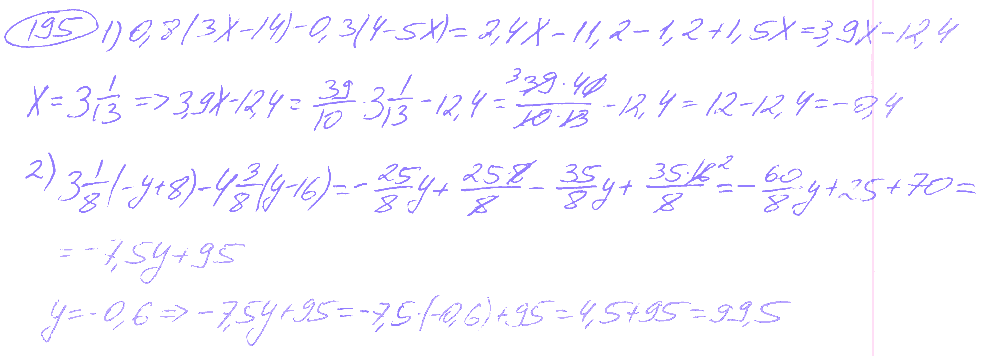 195 1) 0,8(3x-14)-0,3(4-5x)= 2,4x-11,2-1,2+1,5x=3,9x-12,4
x=3 1/13 => 3,9x-12,4 = 39/10 · 3 1/13 -12,4 = (39·40)/(10·13) 3 -12,4 = 12-12,4=-0,4
2) 3 1/8 (-y+8)-4 3/8 (y-16)=- 25/8 y+ (25·8)/8 - 35/8 y+ (35·16)/8 2 =- 60/8 ·y+25+70=
=-7,5y+95
y=-0,6 => -7,5y+95=-7,5·(-0,6)+95=4,5+95=99,5